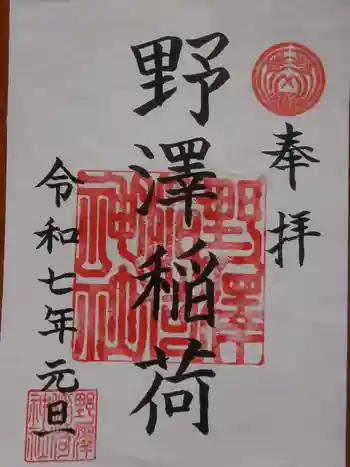 奉拝
野澤稲荷
野澤稲荷神社
令和七年元旦
野澤稲荷社